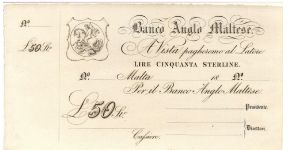 No.
£50 St.
Banco Anglo Maltese.
A Vista pagheremo al Latore
LIRE CINQUANTA STERLINE.
No. Malta 18 No.
Per il Banco Anglo Maltese
£50 St.
Presidente.
Direttore.
Cassiere.